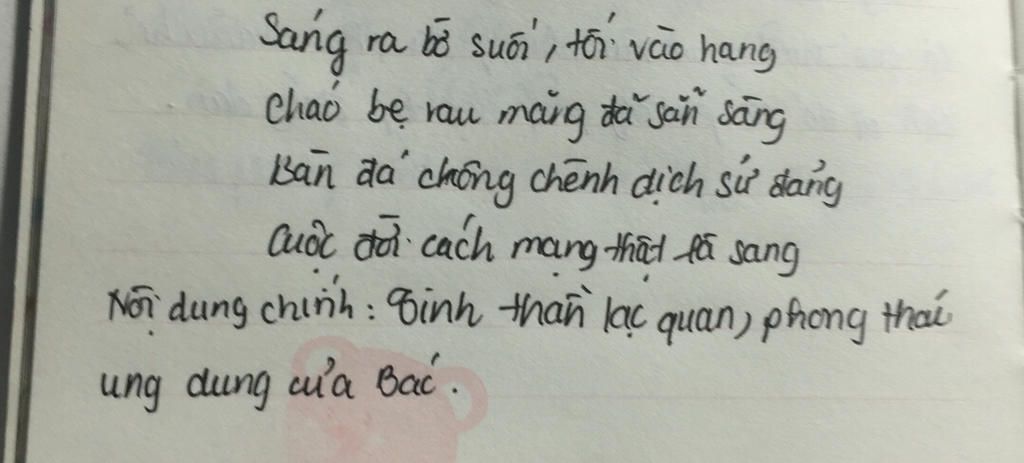 Sáng ra bờ suối, tối vào hang
Cháo bẹ rau măng đã sẵn sàng
Bàn đá chông chênh dịch sử đảng
Cuộc đời cách mạng thật là sang
Nội dung chính: Tinh thần lạc quan, phong thái
ung dung của Bác.